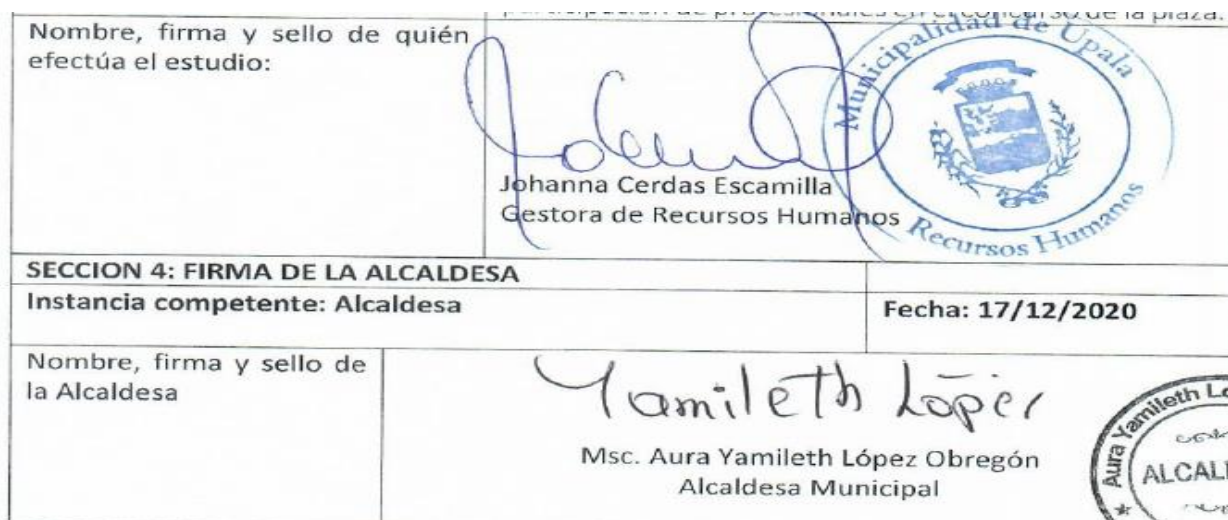 participación de profesionales en el concurso de la plaza.
Nombre, firma y sello de quién
efectúa el estudio:
Municipalidad de Upala
Recursos Humanos
Johanna Cerdas Escamilla
Gestora de Recursos Humanos
SECCION 4: FIRMA DE LA ALCALDESA
Instancia competente: Alcaldesa
Fecha: 17/12/2020
Nombre, firma y sello de
la Alcaldesa
Yamileth López
Msc. Aura Yamileth López Obregón
Alcaldesa Municipal
Aura Yamileth Ló
ALCAL